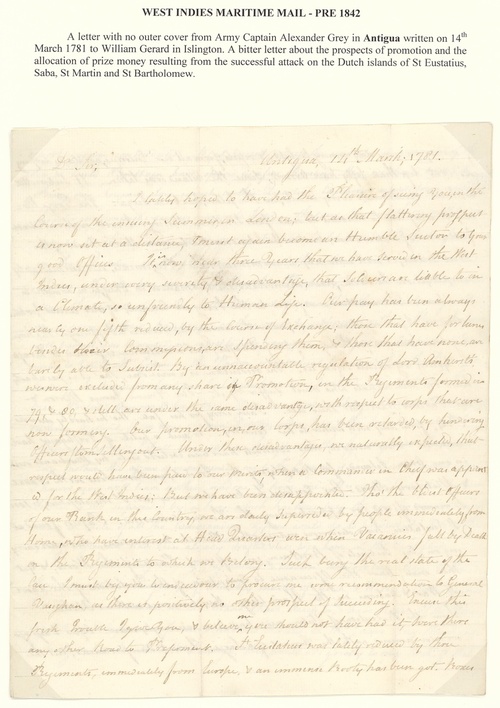 WEST INDIES MARITIME MAIL - PRE 1842
A letter with no outer cover from Army Captain Alexander Grey in Antigua written on 14th
March 1781 to William Gerard in Islington. A bitter letter about the prospects of promotion and the
allocation of prize money resulting from the successful attack on the Dutch islands of St Eustatius,
Saba, St Martin and St Bartholomew.
Dr Sir, Antigua, 14th March, 1781.
I lately hoped to have had the Pleasure of seeing you, in the
Course of the ensuing Summer, in London; but as that flattering prospect
is now set at a distance, I must again become an Humble Suitor to your
good Offices. 'Tis now near three Years that we have served in the West
Indies, under every severity & disadvantage, that Soldiers are liable to in
a Climate, so unfriendly to Human Life. Our pay has been always
nearly one fifth reduced, by the course of Exchange; those that have fortunes
besides their Commissions, are spending them, & those that have none, are
barely able to Subsist. By an unaccountable regulation of Lord Amherst's
we were excluded from any share of Promotion, in the Regiments formed in
79, & 80, & still are under the same disadvantage, with respect to corps that are
now forming. Our promotion, in our Corps, has been retarded, by hindering
Officers from selling out. Under these disadvantages, we naturally expected, that
respect would have been paid to our merits, when a Commander in Chief was appoint
ed for the West Indies: But we have been disappointed. Tho' the Oldest Officers
of our Rank, in this Country, we are daily superseded by people immediately from
Home, who have interest at Head Quarters, even when Vacancies fall by Death
in the Regiments to which we belong. Such being the real state of the
Case, I must beg you to endeavour to procure me some recommendation to General
Vaughan, as there is positively no other prospect of succeeding. Excuse this
fresh Trouble I give you, & believe me you should not have had it were there
any other Road to Preferment. St Eustatius was lately reduced by those
Regiments, immediately from Europe, & an immense Booty has been got.